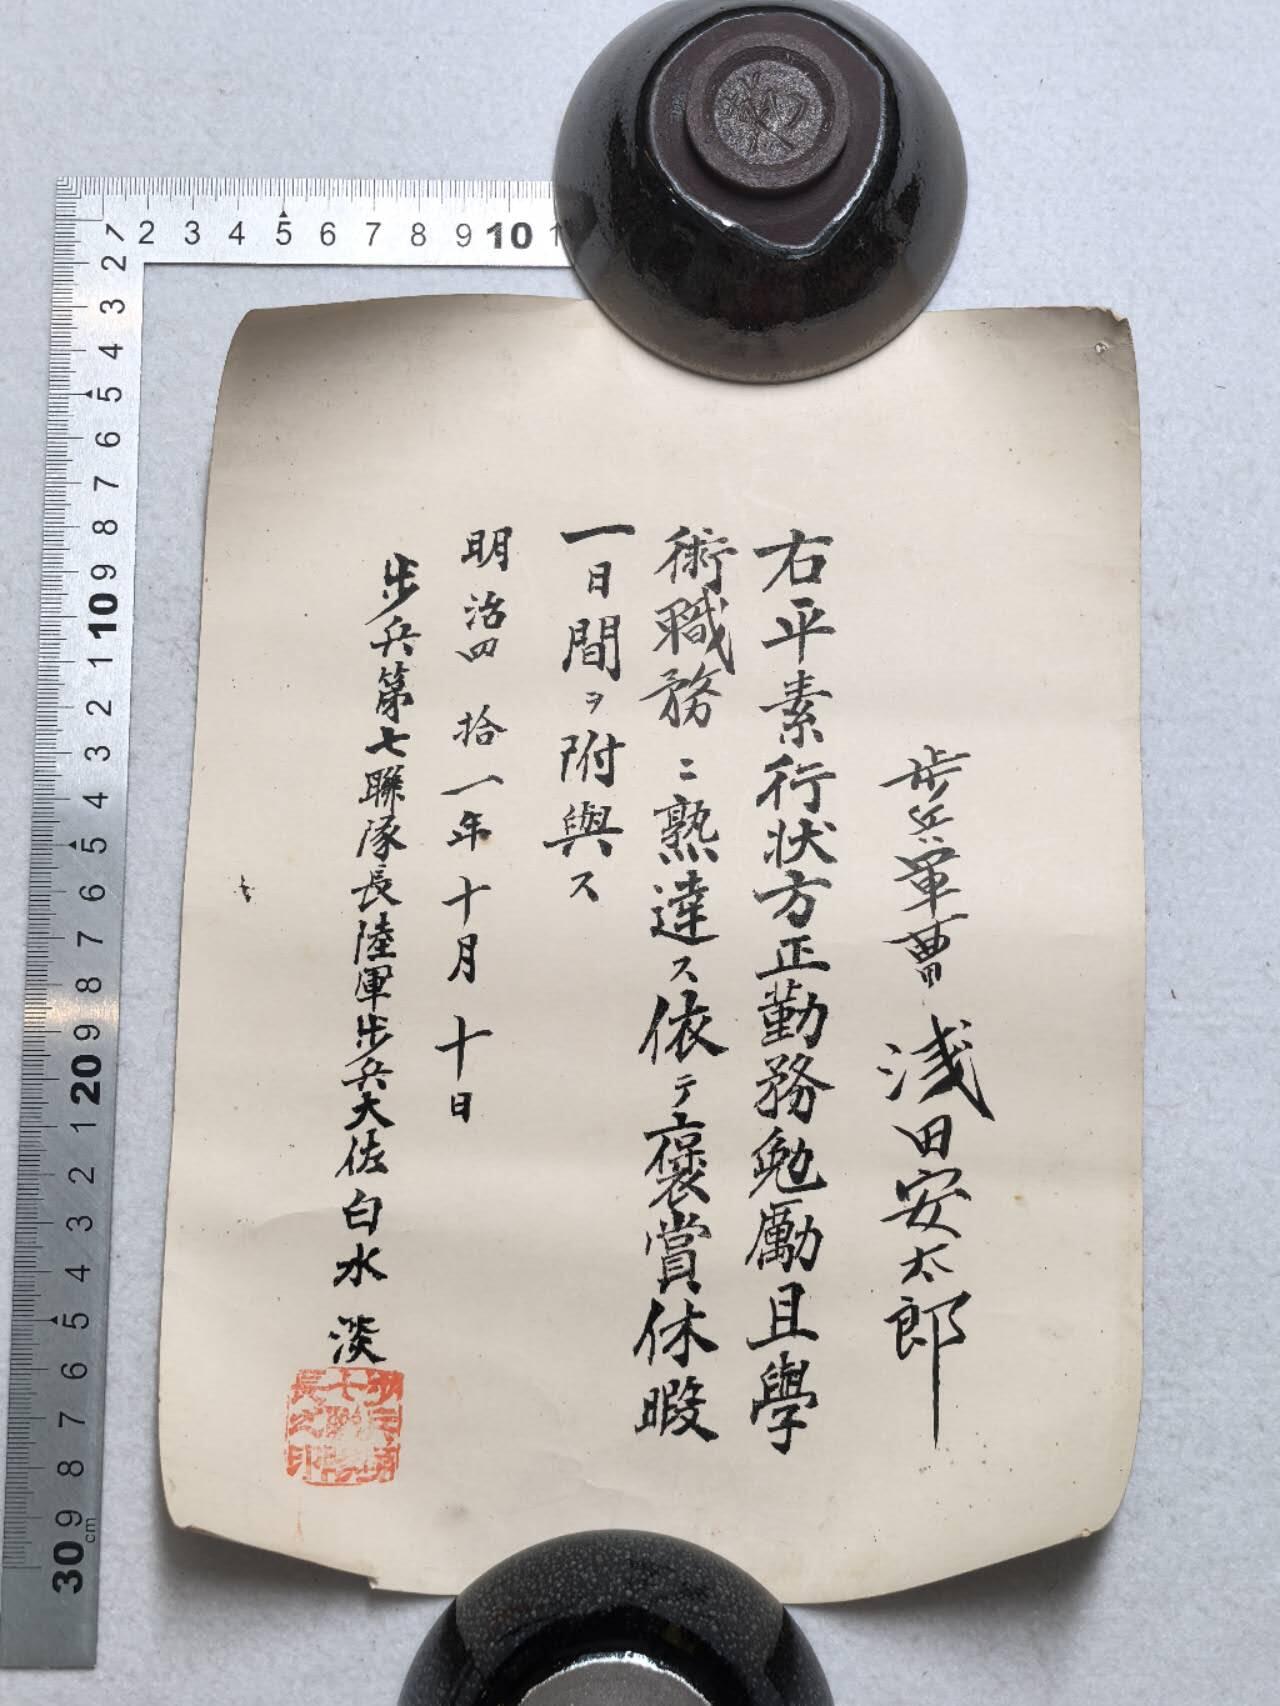 歩兵軍曹 淺田安太郎
右平素行状方正勤務勉励且學
術職務ニ熟達ス依テ褒賞休暇
一日間ヲ附與ス
明治四拾一年十月十日
歩兵第七聯隊長陸軍歩兵大佐白水淡
歩兵第
七聯隊
長之印
1 2 3 4 5 6 7 8 9 10 1
2 3 4 5 6 7 8 9 10 1 2 3 4 5 6 7 8 9 20 1 2 3 4 5 6 7 8 9 30
cm